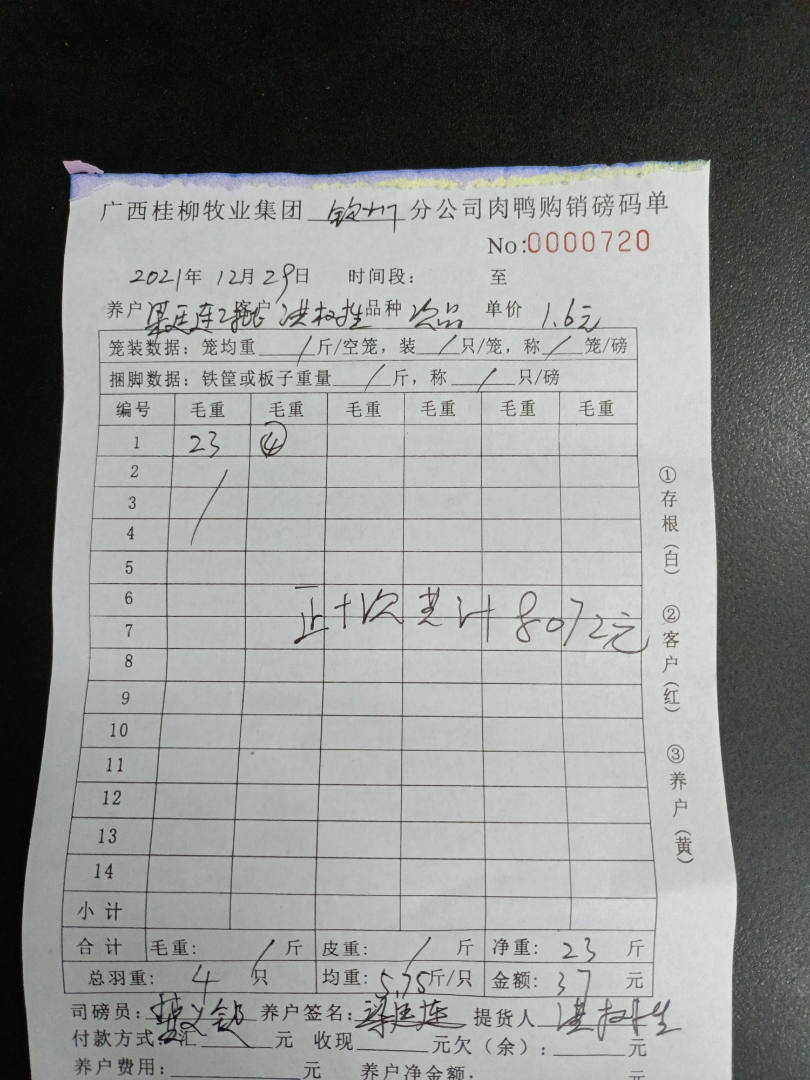 广西桂柳牧业集团 钦州 分公司肉鸭购销磅码单
No:0000720
2021年 12月 29日 时间段: 至
养户 客户 品种 次品 单价 1.6元
笼装数据: 笼均重 / 斤/空笼, 装 / 只/笼, 称 / 笼/磅
捆脚数据: 铁筐或板子重量 / 斤, 称 / 只/磅
编号 毛重 毛重 毛重 毛重 毛重 毛重
1 23 ④
2 /
3
4
5
6
正十次共计8072元
7
8
9
10
11
12
13
14
小计
合计 毛重: / 斤 皮重: / 斤 净重: 23 斤
总羽重: 4 只 均重: 5.75斤/只 金额: 37 元
司磅员: 养户签名: 提货人
付款方式: 汇 元 收现 元欠(余): 元
养户费用: 元 养户净金额: 元
①存根(白) ②客户(红) ③养户(黄)